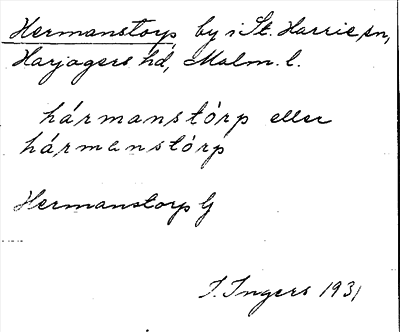 Hermanstorp by i St. Harrie sn,
Harjagers hd, Malm. l.
hármanstórp eller
hármanstórp
Hermanstorp G
I. Ingers 1931